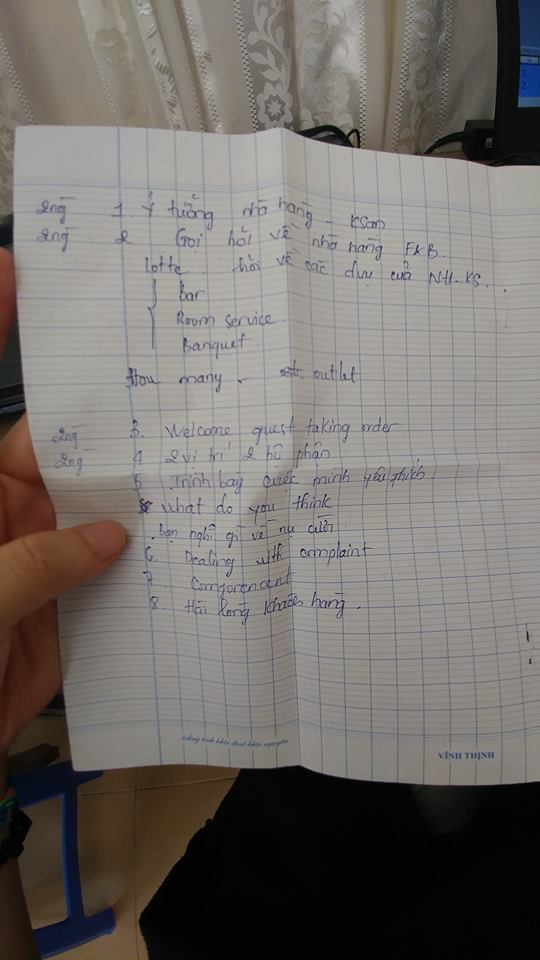 2ng 1. Ý tưởng nhà hàng - Ksạn
2ng 2 Gọi hỏi về nhà hàng F&B.
Lotte hỏi về các dvụ của NH-KS.
Bar
Room service
Banquet
How many outlet
2ng 3. Welcome guest taking order
2ng 4 2 vị trí 2 bộ phận
5 Trình bày mình yêu thích
What do you think
Bạn nghĩ gì về nụ cười
6. Dealing with complaint
7.
8 Hài lòng khách hàng.
VĨNH THỊNH